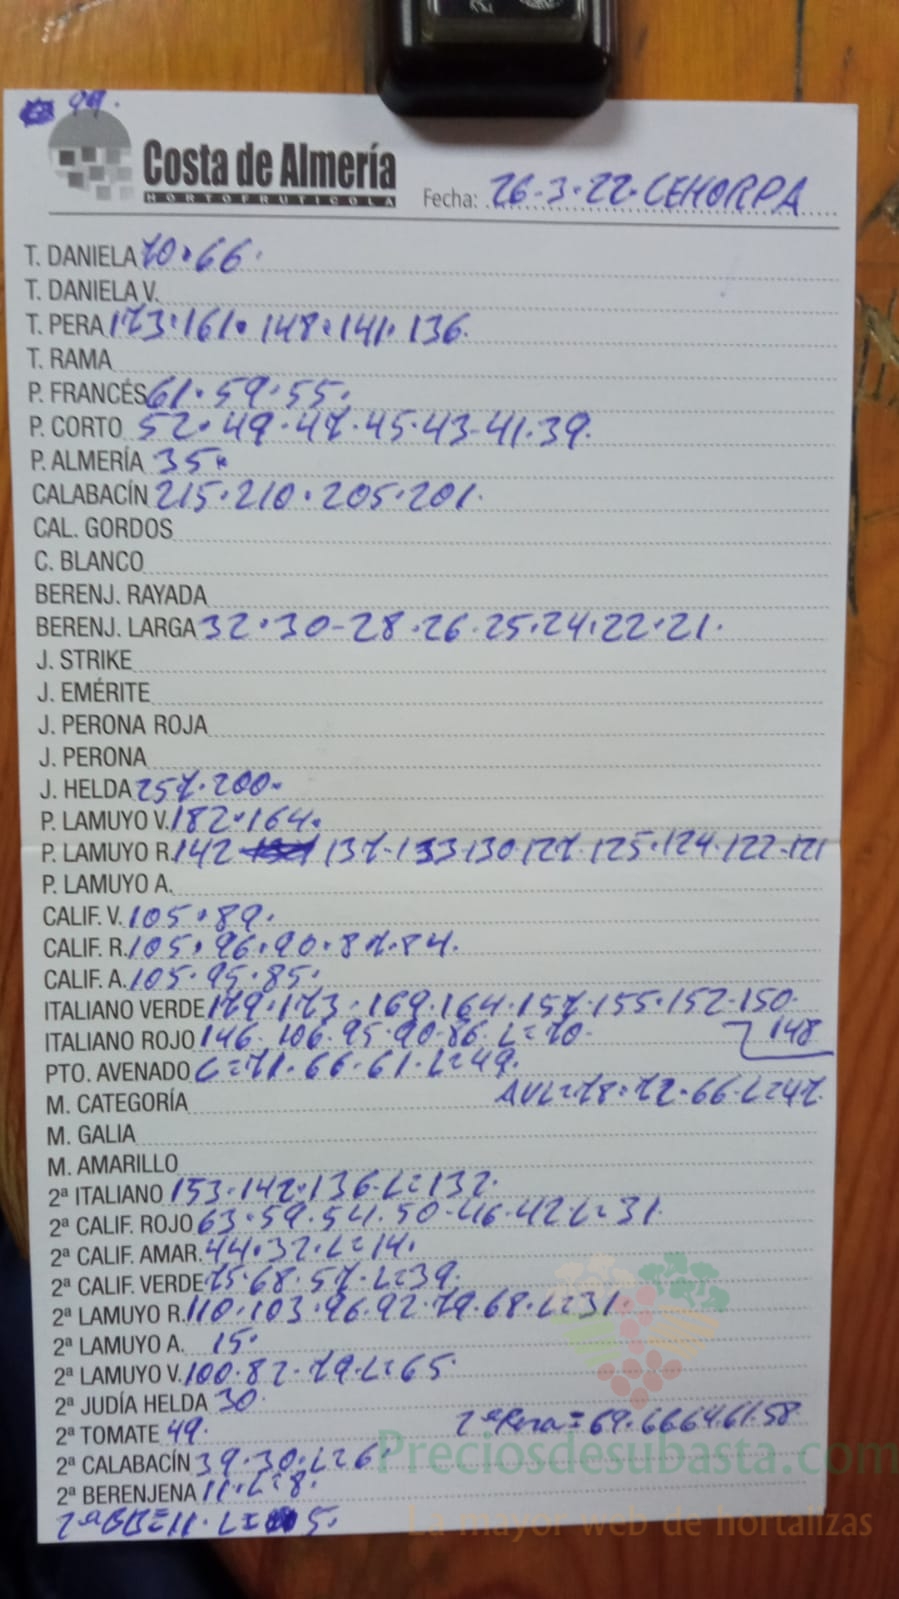 99.
Costa de Almería
HORTOFRUTICOLA
Fecha: 26-3-22-CEHORPA
T. DANIELA 70.66.
T. DANIELA V.
T. PERA 173.161.148.141.136.
T. RAMA
P. FRANCÉS 61.59.55.
P. CORTO 52.49.47.45.43-41.39.
P. ALMERÍA 35.
CALABACÍN 215.210.205.201.
CAL. GORDOS
C. BLANCO
BERENJ. RAYADA
BERENJ. LARGA 32.30-28.26.25.24.22.21.
J. STRIKE
J. EMÉRITE
J. PERONA ROJA
J. PERONA
J. HELDA 257.200.
P. LAMUYO V. 182.164.
P. LAMUYO R. 142 137-133 130.127.125.124.122-121
P. LAMUYO A.
CALIF. V. 105.89.
CALIF. R. 105.96.90.87.84.
CALIF. A. 105.95.85.
ITALIANO VERDE 179.173.169.164.157.155.152-150-
ITALIANO ROJO 146.106.95.90.86.L=70. 148
PTO. AVENADO C=71.66.61.L=49.
M. CATEGORÍA AVL=78.72.66.L=47.
M. GALIA
M. AMARILLO
2ª ITALIANO 153.142.136-L=132.
2ª CALIF. ROJO 63.59.54.50-46.42.L=31.
2ª CALIF. AMAR. 44.32.L=14.
2ª CALIF. VERDE 75.68.57.L=39.
2ª LAMUYO R. 110.103.96.92.79.68.L=31.
2ª LAMUYO A. 15.
2ª LAMUYO V. 100.82.79.L=65.
2ª JUDÍA HELDA 30.
2ª TOMATE 49. 2ª Pera=69.66 64.61.58
2ª CALABACÍN 39.30.L=6
2ª BERENJENA 11.L=8.
2ª GB=11.L=5.
Preciosdesubasta.com
La mayor web de hortalizas